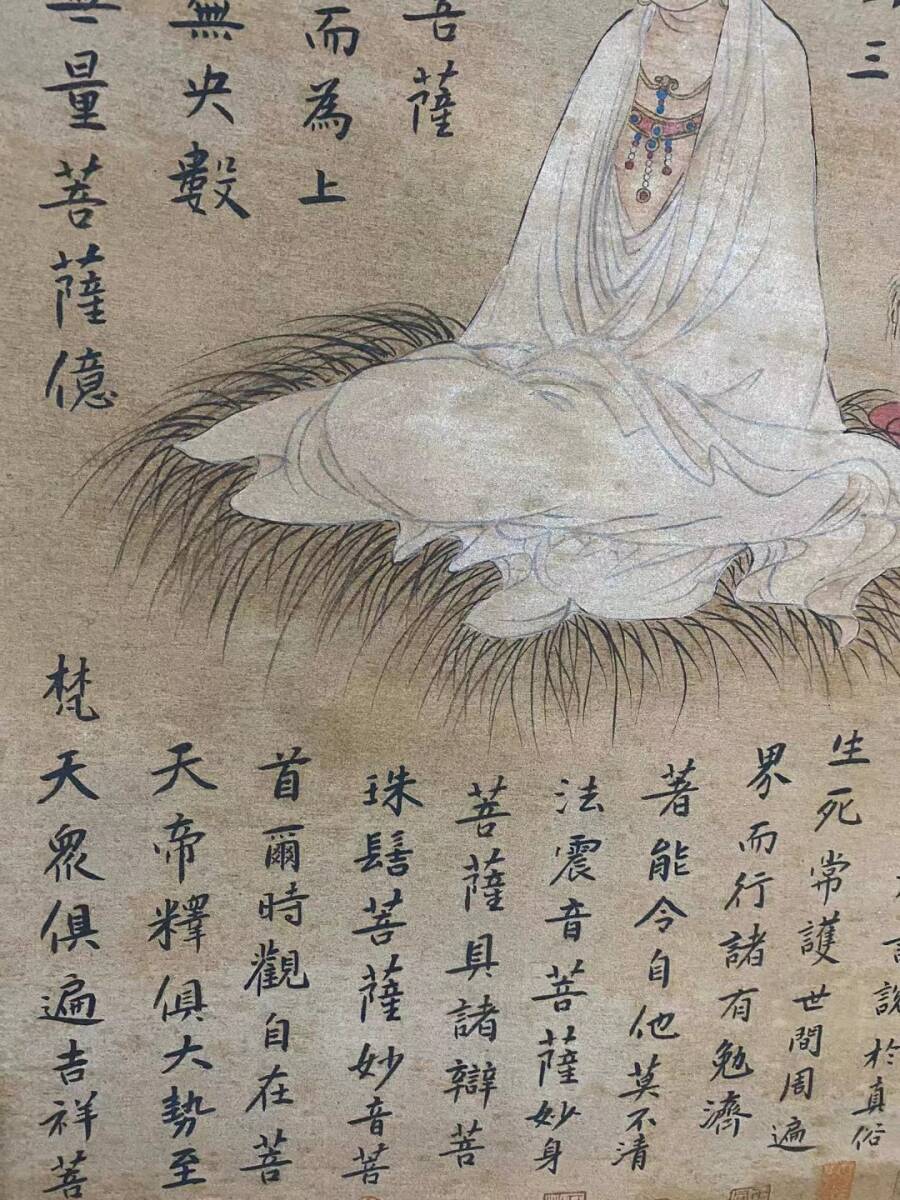 三
菩薩
而為上
無央數
無量菩薩億
說於真俗
生死常護世間周遍
界而行諸有勉濟
著能令自他莫不清
法震音菩薩妙身
菩薩具諸辯菩
珠髻菩薩妙音菩
首爾時觀自在菩
天帝釋俱大勢至
梵天眾俱遍吉祥菩